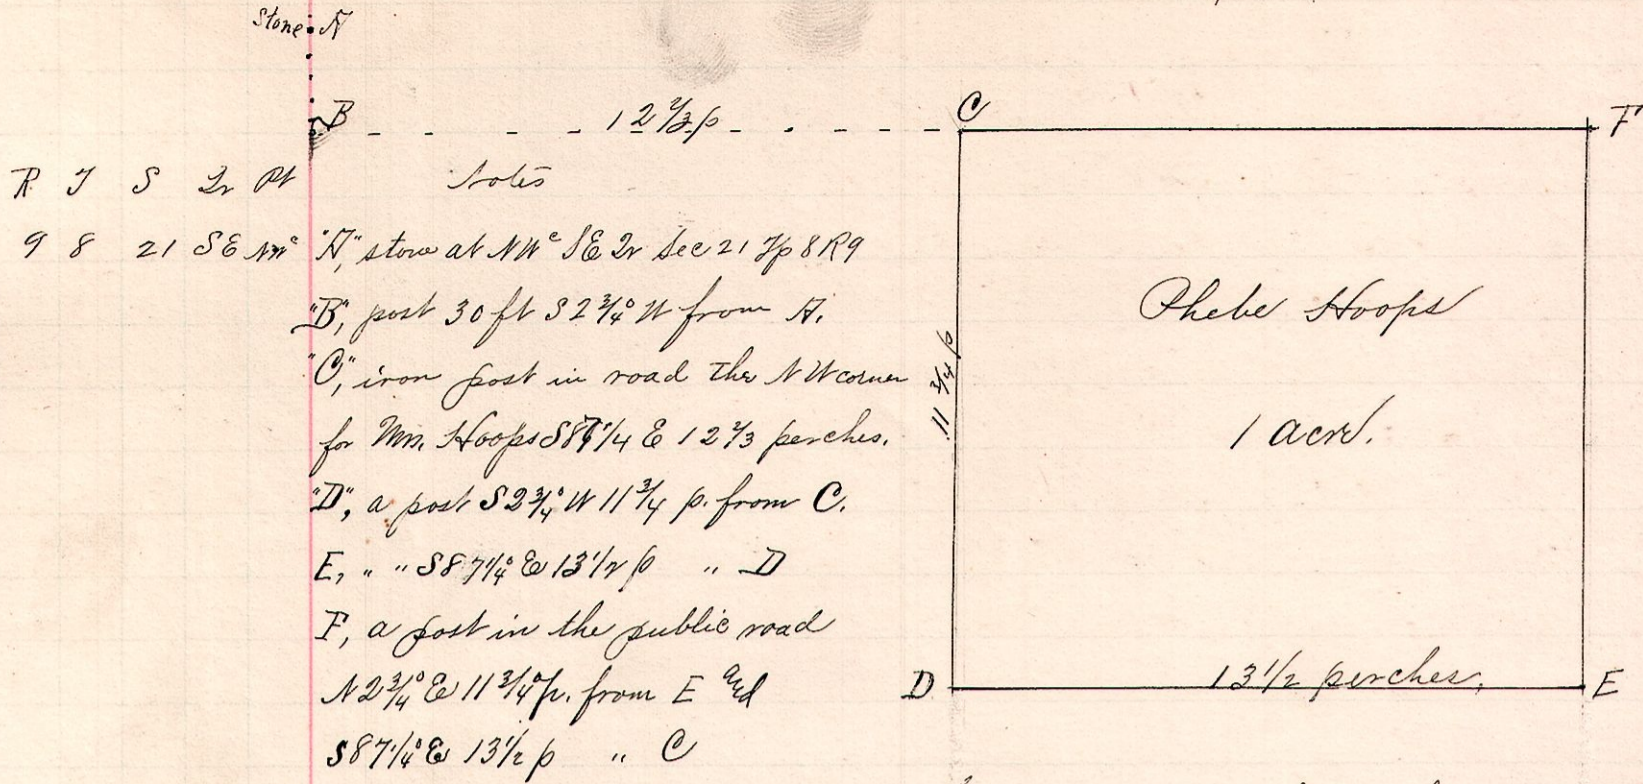 Stone A
B 12 2/3 p C F
R T S Qr Pt Notes
9 8 21 SE NWc "A", stone at NWc SE Qr Sec 21 Tp 8 R9
"B", post 30 ft S 2 3/4° W from A.
"C", iron post in road the NW corner
for Mrs. Hoops S 87 1/4 E 12 2/3 perches.
"D", a post S 2 3/4° W 11 3/4 p. from C.
E, " " S 87 1/4° E 13 1/2 p " D
F, a post in the public road
N 2 3/4° E 11 3/4 p. from E and
S 87 1/4° E 13 1/2 p " C
11 3/4 p
Phebe Hoops
1 acre.
D 13 1/2 perches. E